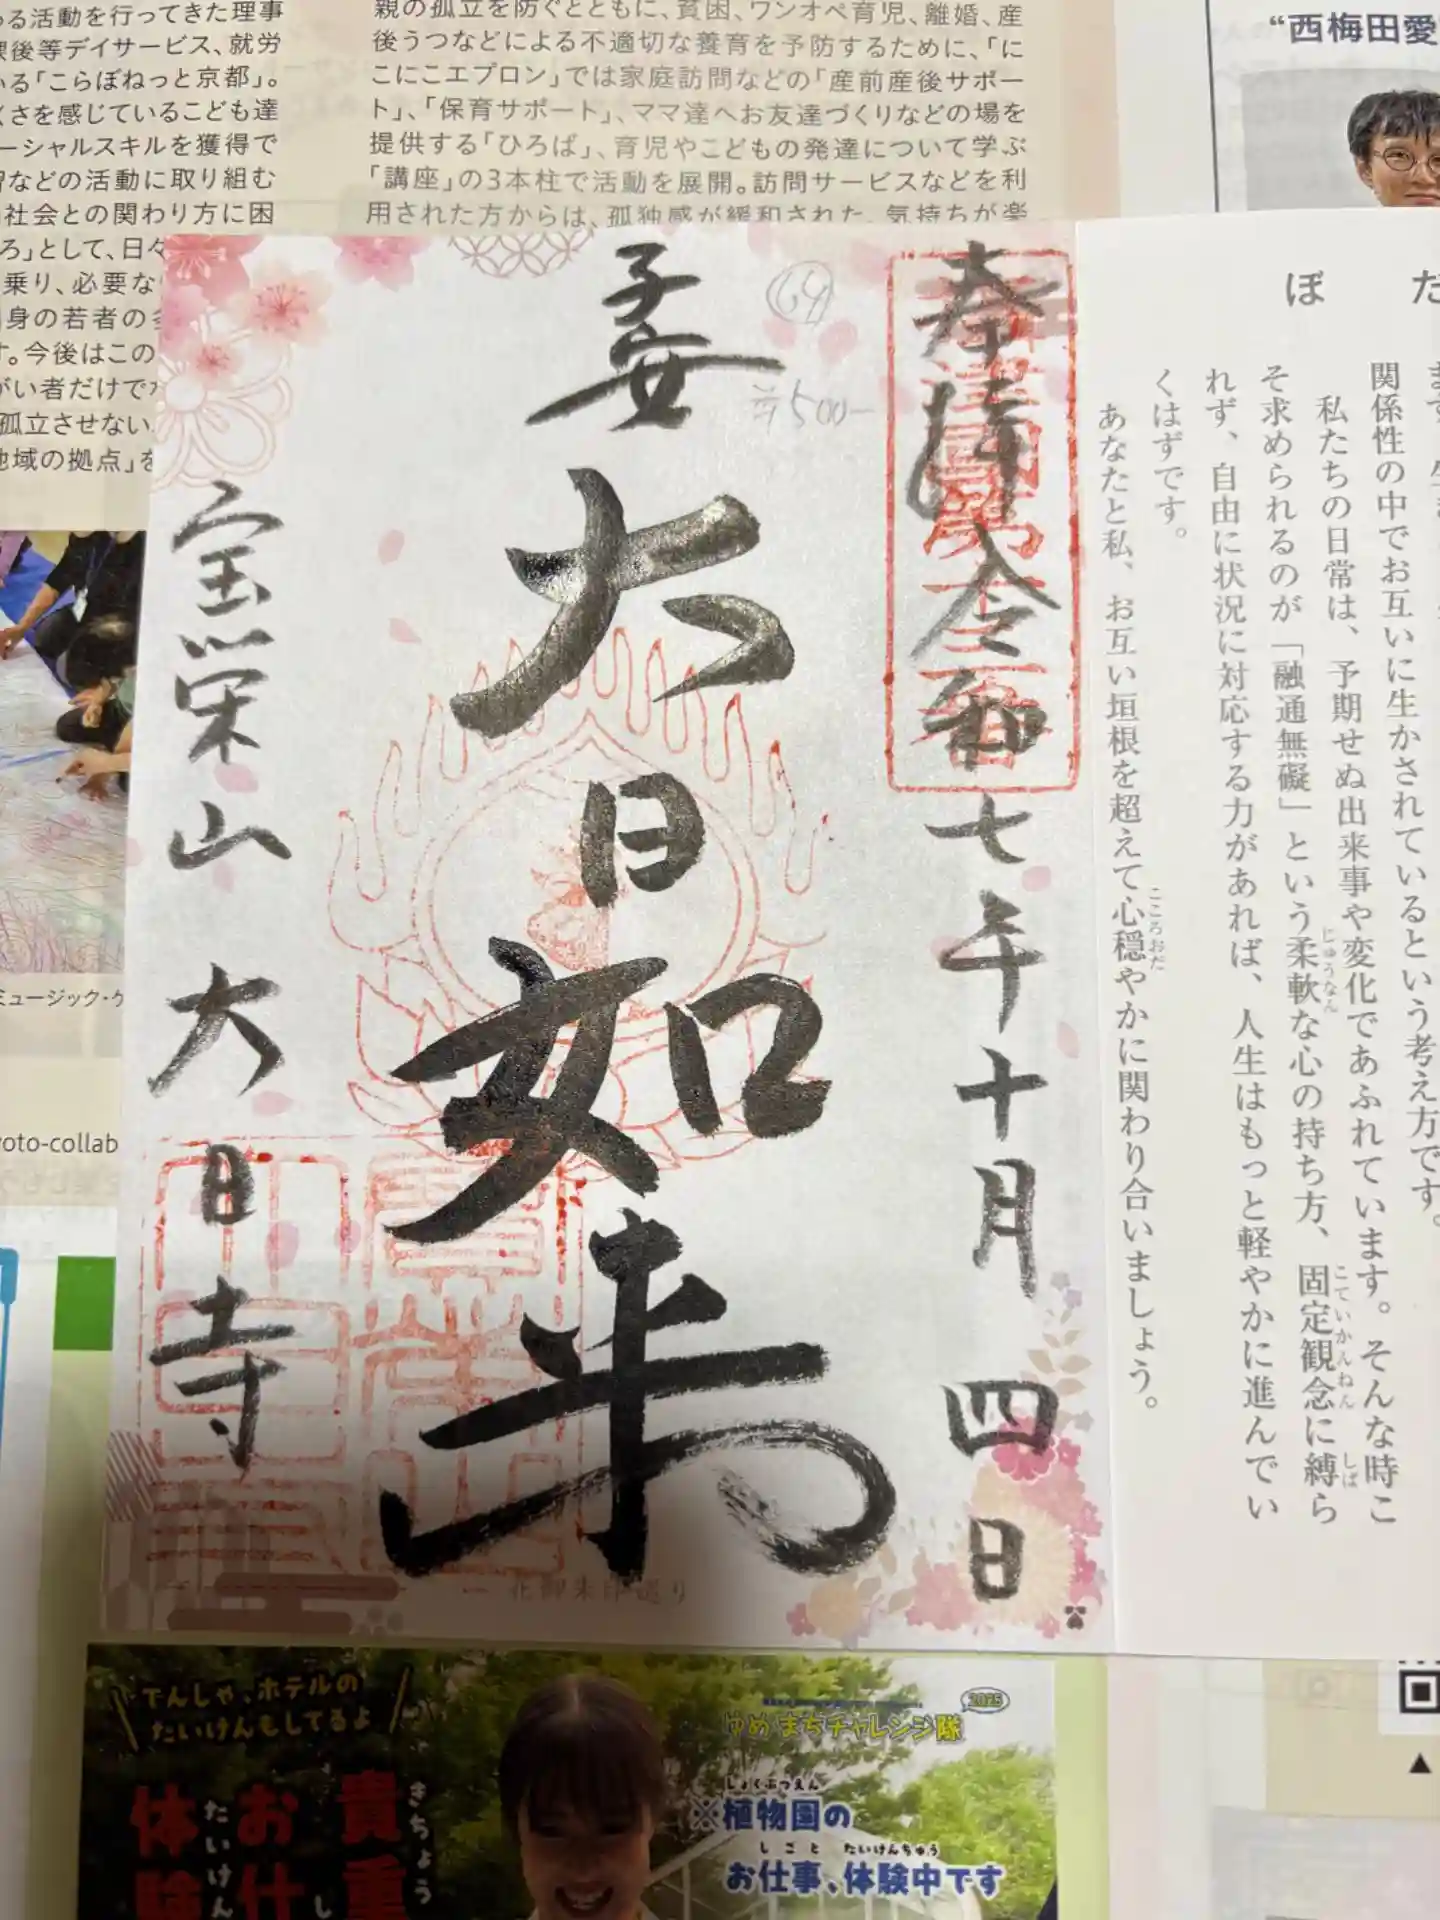 る活動を行ってきた理事
課後等デイサービス、就労
いる「こらぼねっと京都」。
くさを感じているこども達
ーシャルスキルを獲得で
習などの活動に取り組む
社会との関わり方に困
ろ」として、日々
乗り、必要な
身の若者の多
す。今後はこの
がい者だけでな
孤立させない
地域の拠点」を
ミュージック・ケ
yoto-collab
親の孤立を防ぐとともに、貧困、ワンオペ育児、離婚、産
後うつなどによる不適切な養育を予防するために、「に
こにこエプロン」では家庭訪問などの「産前産後サポー
ト」、「保育サポート」、ママ達へお友達づくりなどの場を
提供する「ひろば」、育児やこどもの発達について学ぶ
「講座」の3本柱で活動を展開。訪問サービスなどを利
用された方からは、孤独感が緩和された、気持ちが楽
“西梅田愛
ぼだ
関係性の中でお互いに生かされているという考え方です。
私たちの日常は、予期せぬ出来事や変化であふれています。そんな時こ
そ求められるのが「融通無礙」という柔軟な心の持ち方、固定観念に縛ら
じゅうなん
こていかんねん
しば
れず、自由に状況に対応する力があれば、人生はもっと軽やかに進んでい
くはずです。
あなたと私、お互い垣根を超えて心穏やかに関わり合いましょう。
こころおだ
奉拝 令和七年十月四日
69
¥500-
子安
大日如来
宝栄山 大日寺
花御朱印巡り
でんしゃ、ホテルの
たいけんもしてるよ
貴重
きちょう
お仕
し
体験
たいけん
2025
ゆめまちチャレンジ隊
しょくぶつえん
※植物園の
しごと たいけんちゅう
お仕事、体験中です